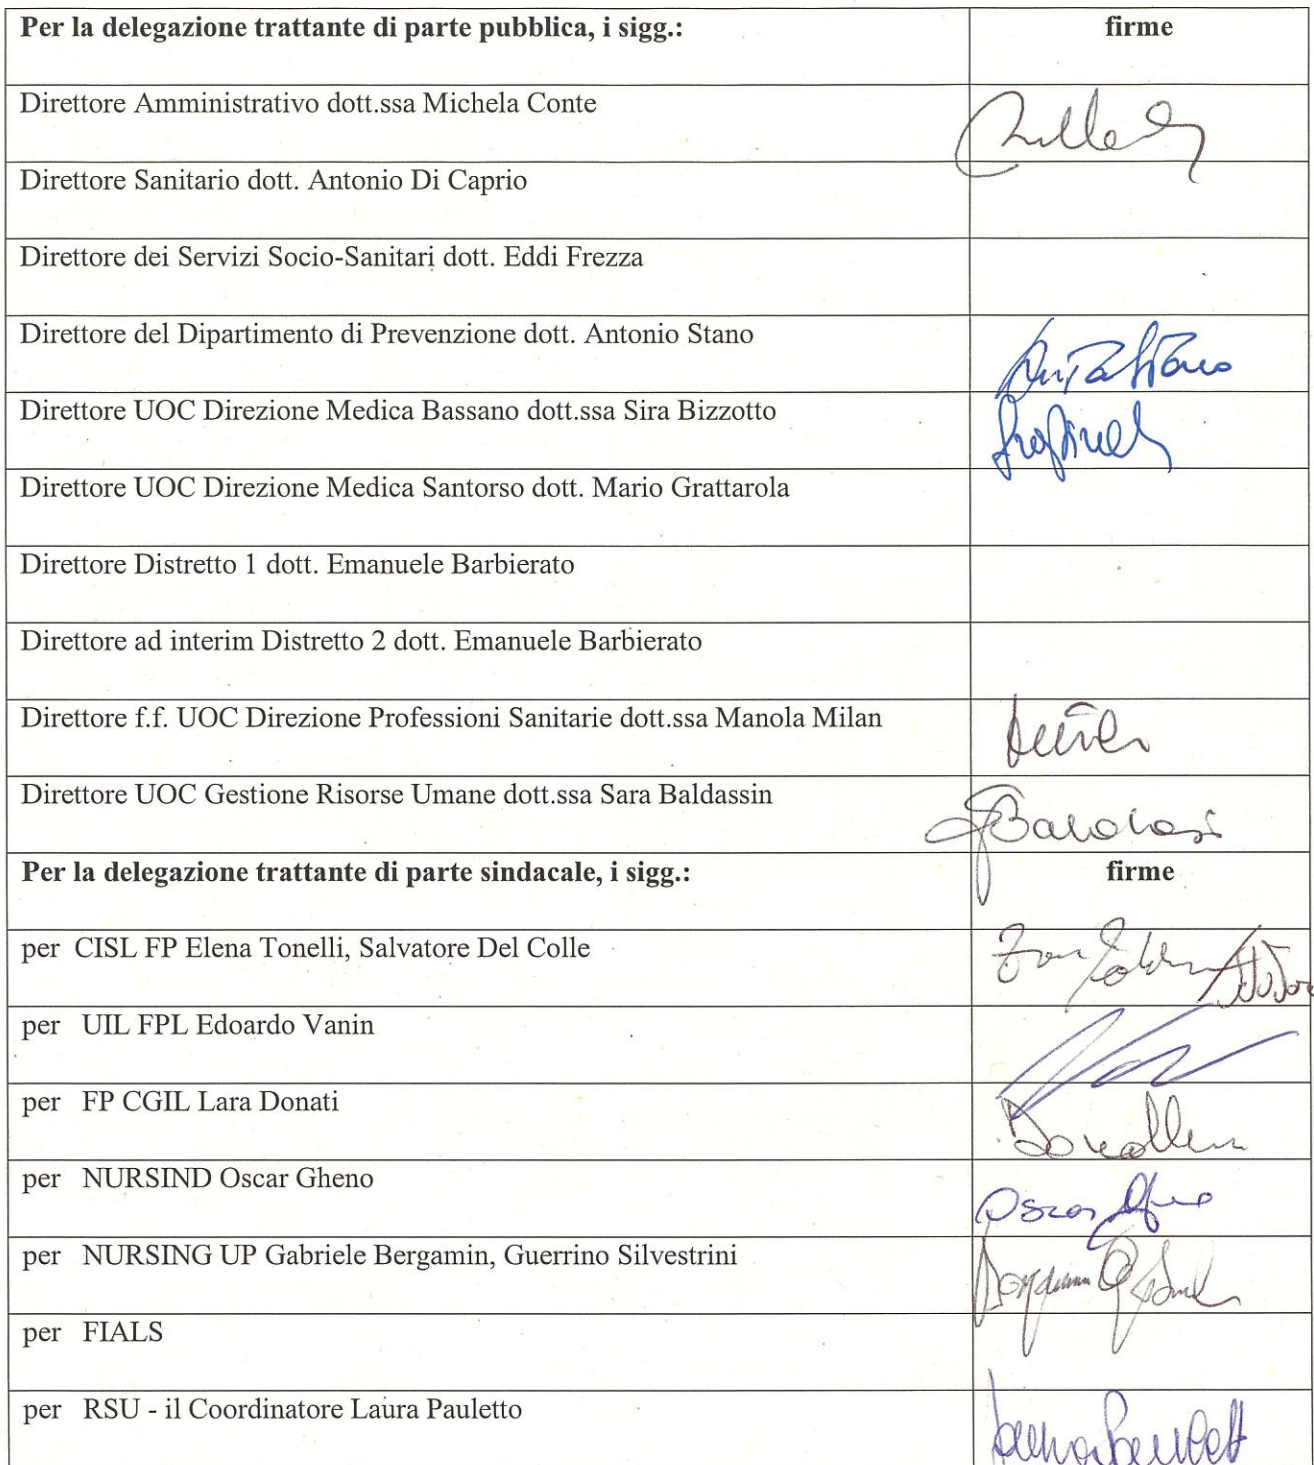 Per la delegazione trattante di parte pubblica, i sigg.: firme
Direttore Amministrativo dott.ssa Michela Conte
Direttore Sanitario dott. Antonio Di Caprio
Direttore dei Servizi Socio-Sanitari dott. Eddi Frezza
Direttore del Dipartimento di Prevenzione dott. Antonio Stano
Direttore UOC Direzione Medica Bassano dott.ssa Sira Bizzotto
Direttore UOC Direzione Medica Santorso dott. Mario Grattarola
Direttore Distretto 1 dott. Emanuele Barbierato
Direttore ad interim Distretto 2 dott. Emanuele Barbierato
Direttore f.f. UOC Direzione Professioni Sanitarie dott.ssa Manola Milan
Direttore UOC Gestione Risorse Umane dott.ssa Sara Baldassin
Per la delegazione trattante di parte sindacale, i sigg.: firme
per CISL FP Elena Tonelli, Salvatore Del Colle
per UIL FPL Edoardo Vanin
per FP CGIL Lara Donati
per NURSIND Oscar Gheno
Oscar
per NURSING UP Gabriele Bergamin, Guerrino Silvestrini
per FIALS
per RSU - il Coordinatore Laura Pauletto